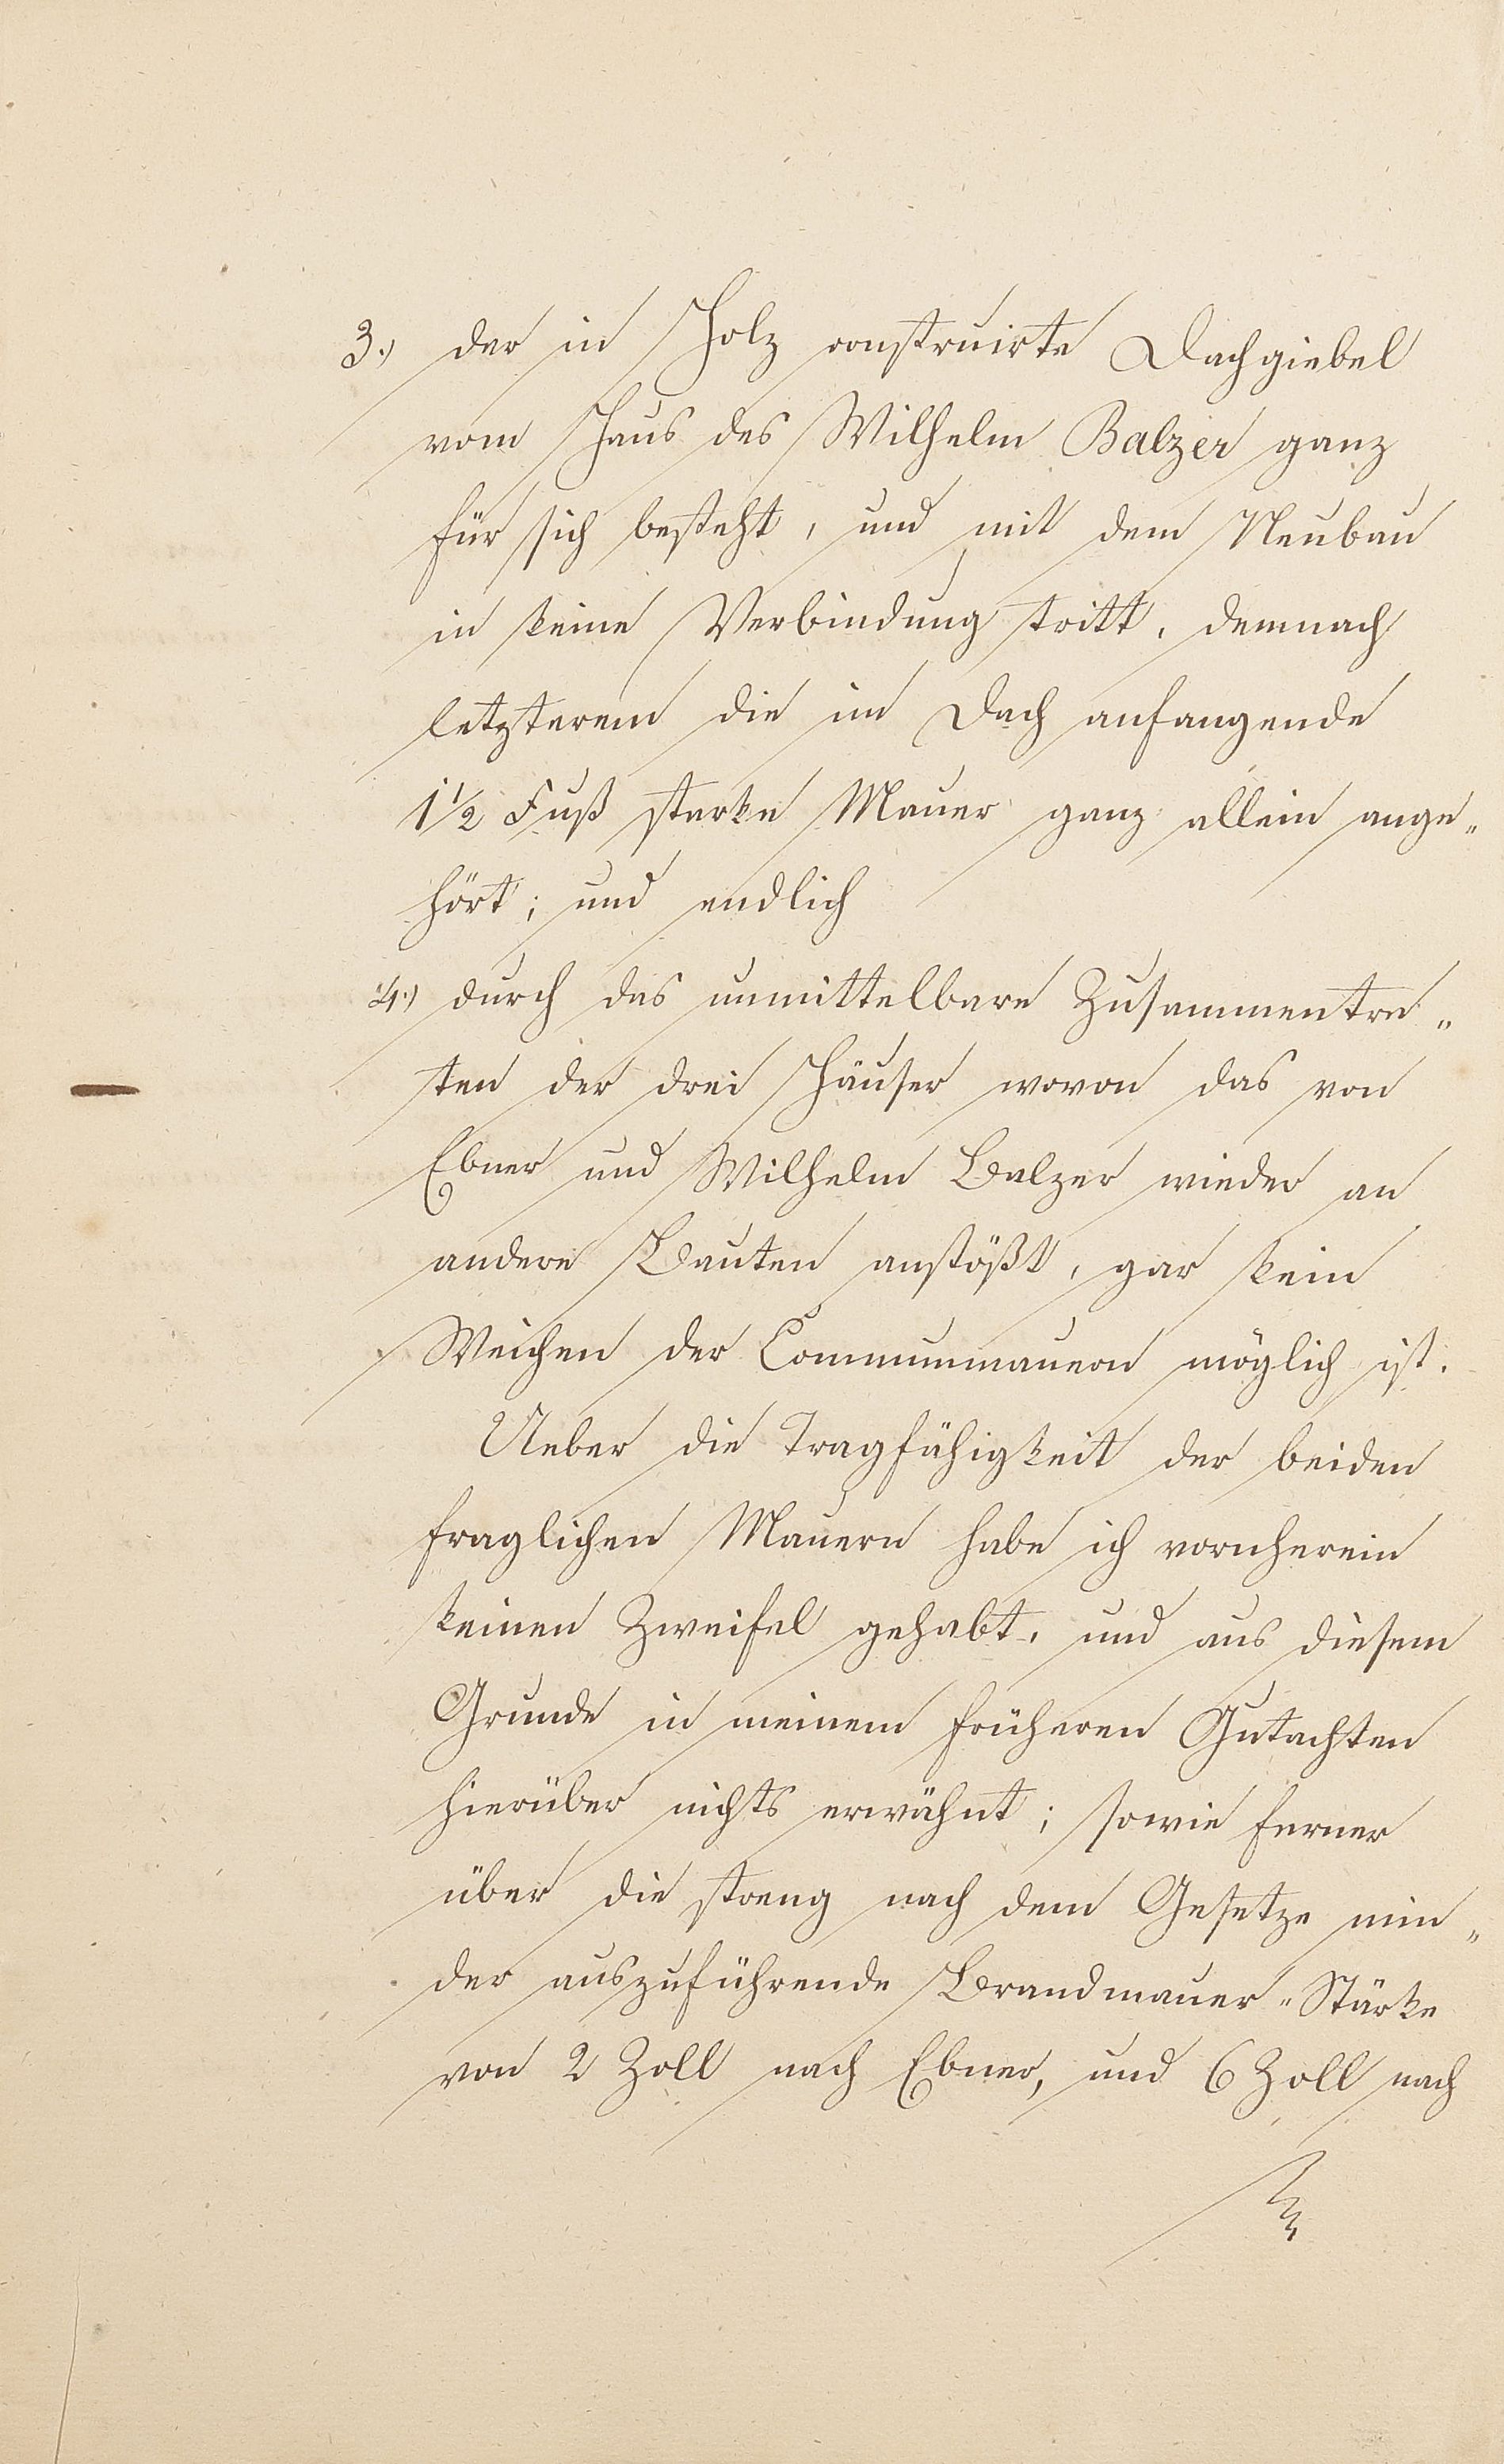 3.) der in Holz construirte Dachgiebel
vom Haus des Wilhelm Balzer ganz
für sich besteht, und mit dem Neubau
in keine Verbindung tritt, demnach
letzterem die im Dach anfangende
1 1/2 Fuß starke Mauer ganz allein ange„
hört; und endlich
4.) durch das unmittelbare Zusammentre„
ten der drei Häuser wovon das von
Ebner und Wilhelm Balzer wieder an
andere Bauten anstößt, gar kein
Weichen der Communmauern möglich ist.
Ueber die Tragfähigkeit der beiden
fraglichen Mauern habe ich vornherein
keinen Zweifel gehabt, und aus diesem
Grunde in meinem früheren Gutachten
hierüber nichts erwähnt; sowie ferner
über die streng nach dem Gesetze min„
der auszuführende Brandmauer-Stärke
von 2 Zoll nach Ebner, und 6 Zoll nach